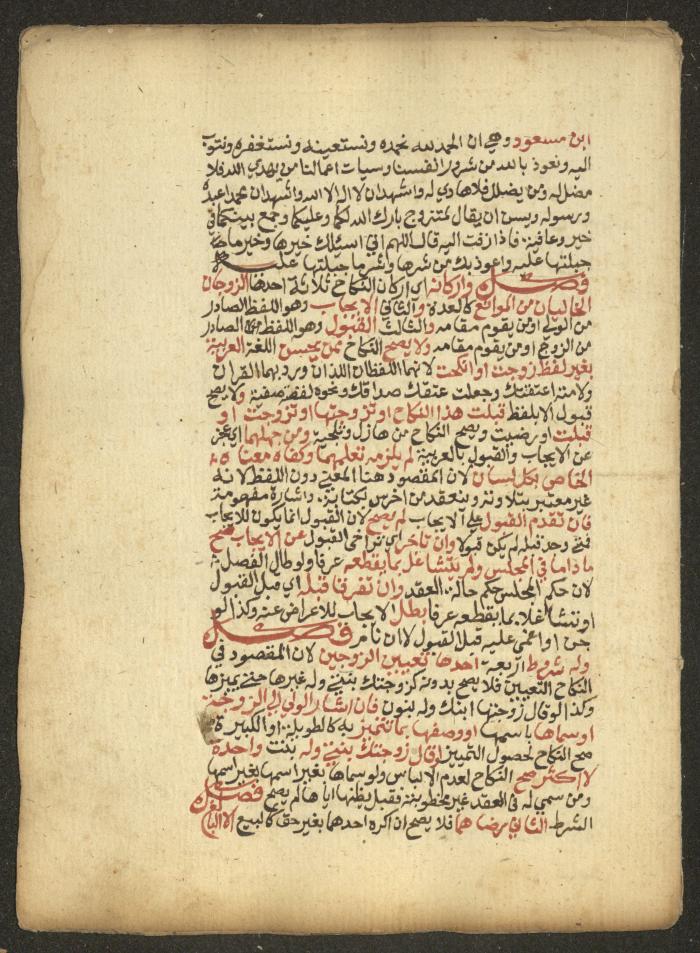 ابن مسعود وهي ان الحمد لله نحمده ونستعينه ونستغفره ونتوب
اليه ونعوذ بالله من شرور انفسنا وسيات اعمالنا من يهدي الله فلا
مضل له ومن يضلل فلا هادي له واشهد ان لا اله الا الله واشهد ان محمدا عبده
ورسوله ويسن ان يقال لمتزوج بارك الله لكما وعليكما وجمع بينكما في
خير وعافية فاذا زفت اليه قال اللهم اني اسئلك خيرها وخير ما
جبلتها عليه واعوذ بك من شرها وشر ما جبلتها عليه
فصل واركانه اي اركان النكاح ثلاثة احدها الزوجان
الخاليان من الموانع كالعدة والثاني الايجاب وهو اللفظ الصادر
من الولي او من يقوم مقامه والثالث القبول وهو اللفظ الصادر
من الزوج او من يقوم مقامه ولا يصح النكاح ممن يحسن اللغة العربية
بغير لفظ زوجت او انكحت لانهما اللفظان اللذان ورد بهما القران
ولامته اعتقتك وجعلت عتقك صداقك ونحوه لقصة صفية ولا يصح
قبول الا بلفظ قبلت هذا النكاح او تزوجتها او تزوجت او
قبلت او رضيت ويصح النكاح من هازل وتلجية ومن جهلهما اي عجز
عن الايجاب والقبول بالعربية لم يلزمه تعلمهما وكفاه معناهما
الخاص بكل لسان لان المقصود هنا المعنى دون اللفظ لانه
غير متعبد بتلاوته وينعقد من اخرس بكتابة واشارة مفهومة
فان تقدم القبول على الايجاب لم يصح لان القبول انما يكون للايجاب
فمتى وجد قبله لم يكن قبولا وان تاخر اي تراخى القبول عن الايجاب صح
ما داما في المجلس ولم يتشاغلا بما يقطعه عرفا ولو طال الفصل
لان حكم المجلس حكم حالة العقد وان تفرقا قبله اي قبل القبول
او تشاغلا بما يقطعه عرفا بطل الايجاب للاعراض عنه وكذا لو
جن او اغمى عليه قبل القبول لا ان نام فصل
وله شروط اربعة احدها تعيين الزوجين لان المقصود في
النكاح التعيين فلا يصح بدونه كزوجتك بنتي وله غيرها حتى يميزها
وكذا لو قال زوجتها ابنك وله بنون فان اشار الولي الى الزوجة
او سماها باسمها او وصفها بما تتميز به كالطويلة او الكبيرة
صح النكاح لحصول التمييز او قال زوجتك بنتي وله بنت واحدة
لا اكثر صح النكاح لعدم الالباس ولو سماها بغير اسمها
ومن سمي له في العقد غير مخطوبته فقبل يظنها اياها لم يصح فصل
الشرط الثاني رضاهما فلا يصح ان اكره احدهما بغير حق كالبيع الا البالغ